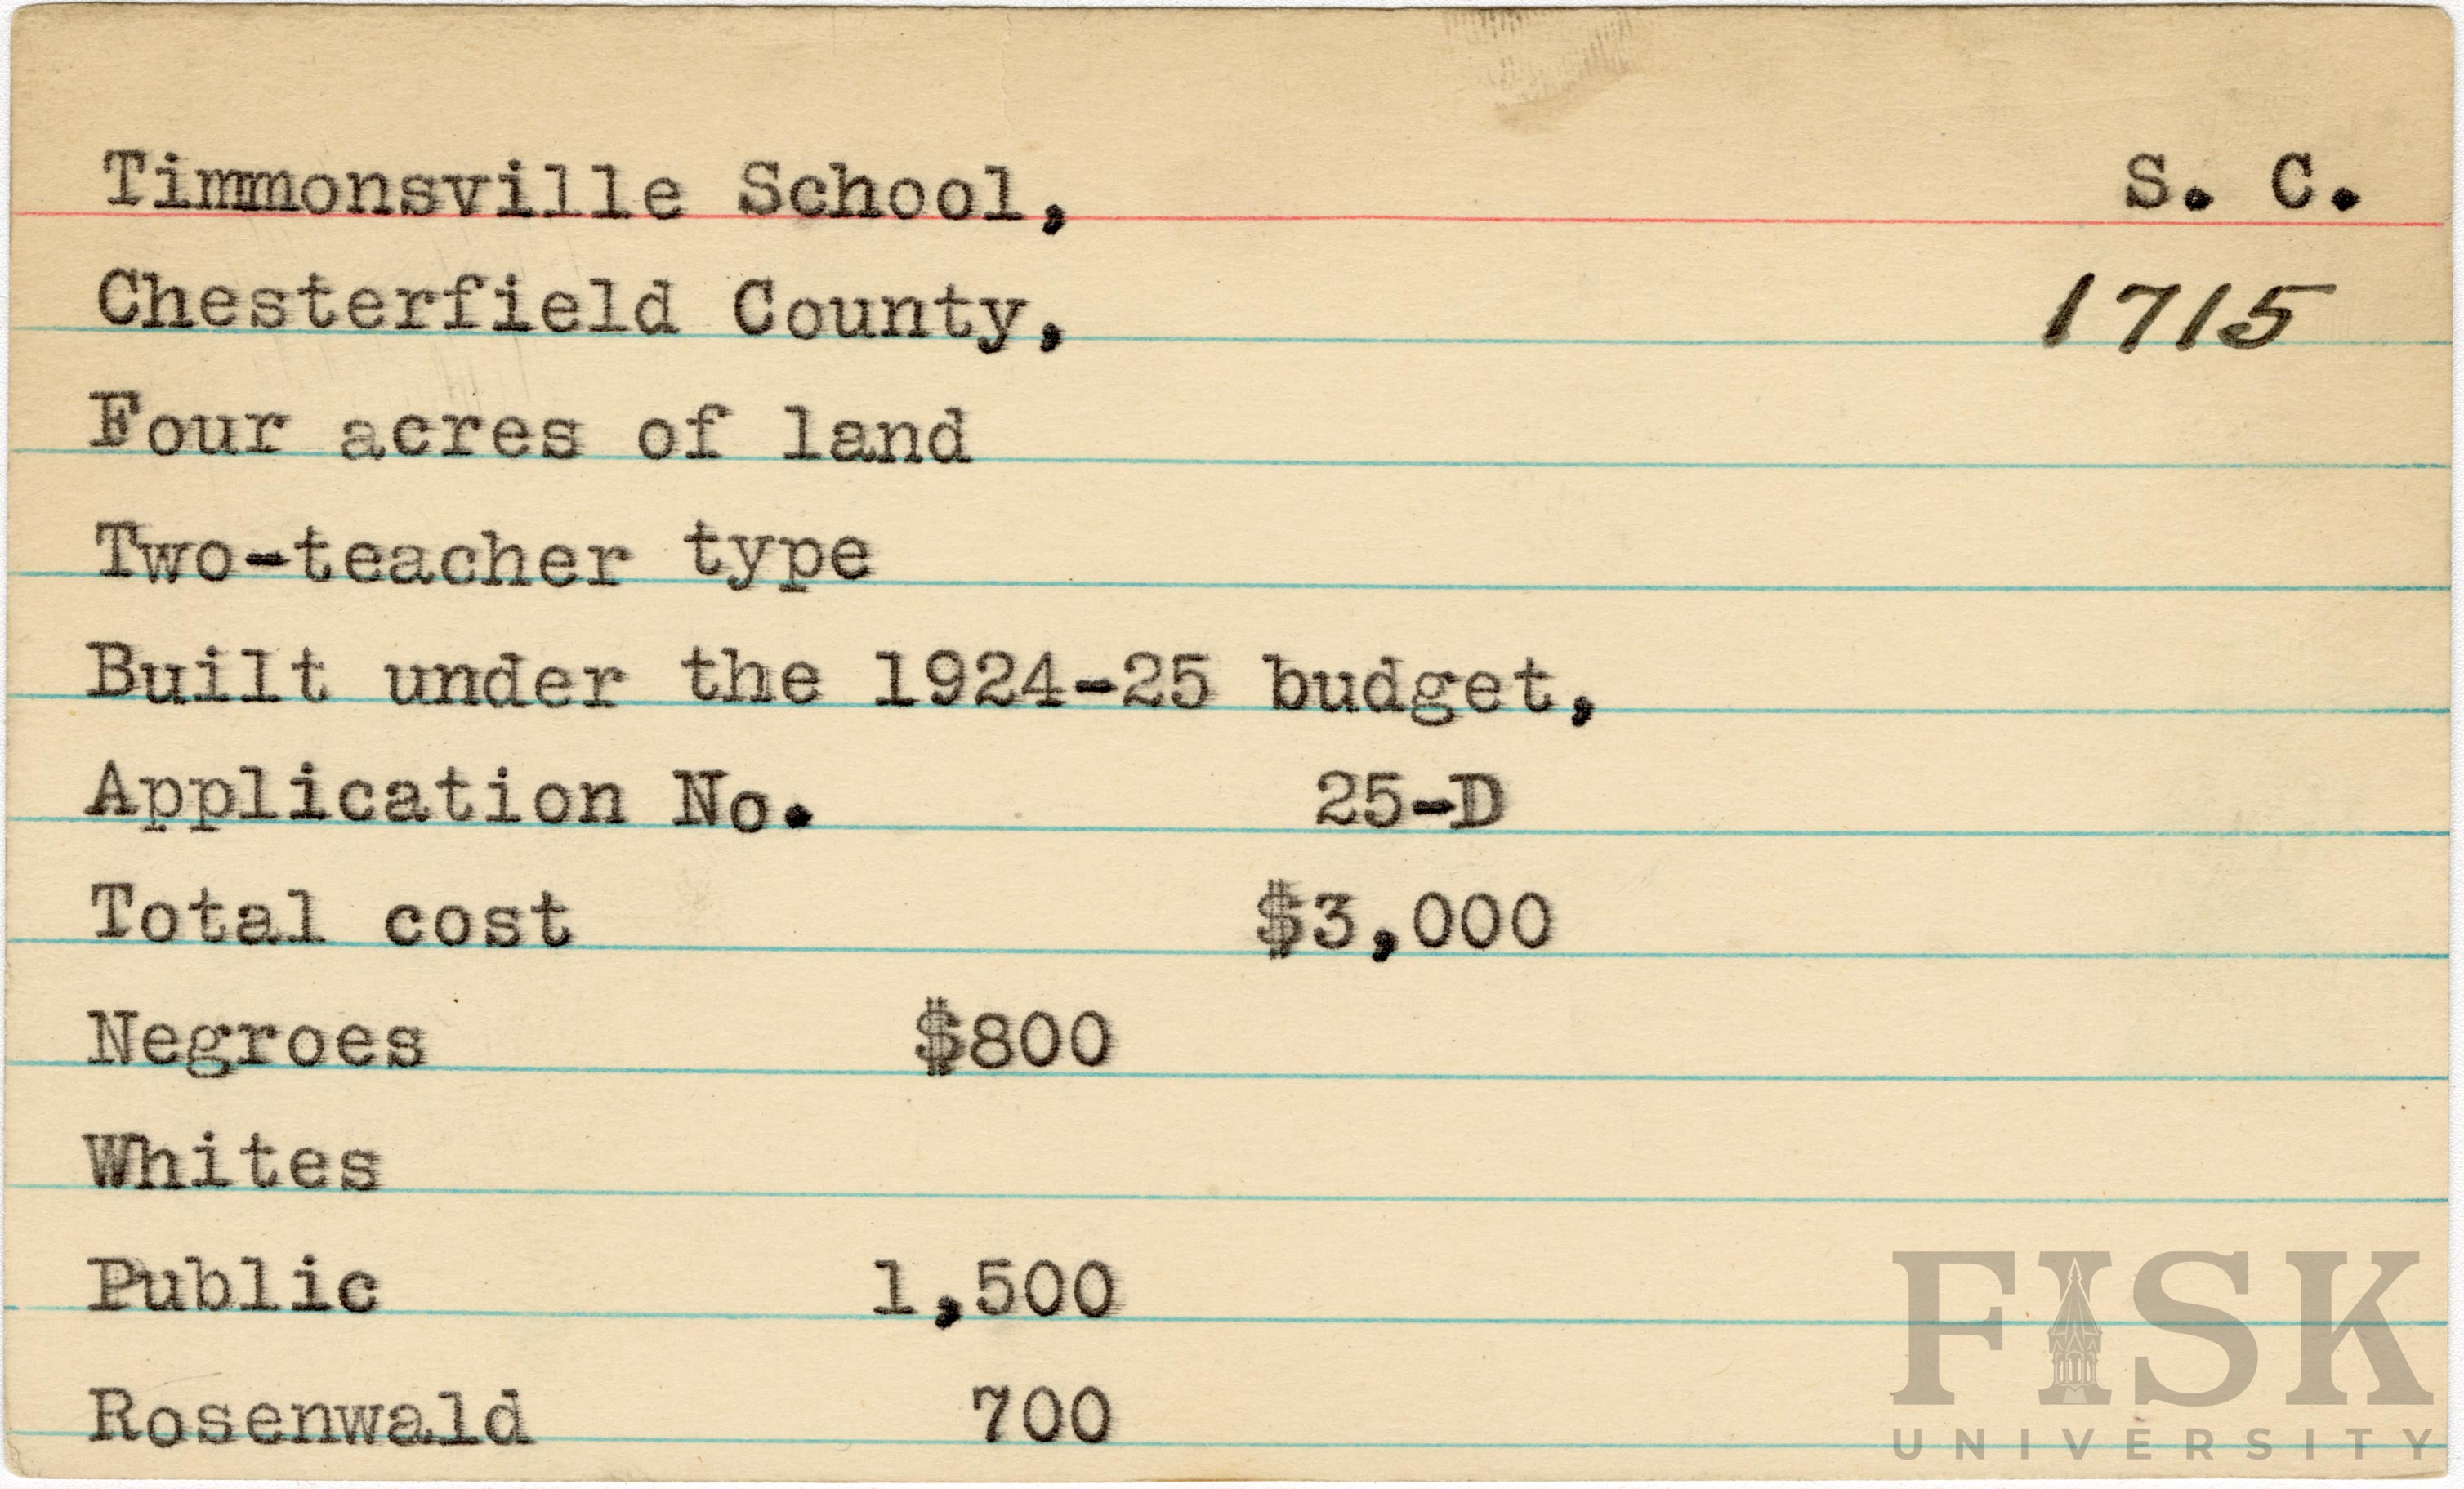 Timmonsville School, S. C.
Chesterfield County, 1715
Four acres of land
Two-teacher type
Built under the 1924-25 budget,
Application No. 25-D
Total cost $3,000
Negroes $800
Whites
Public 1,500
Rosenwald 700
FISK
UNIVERSITY